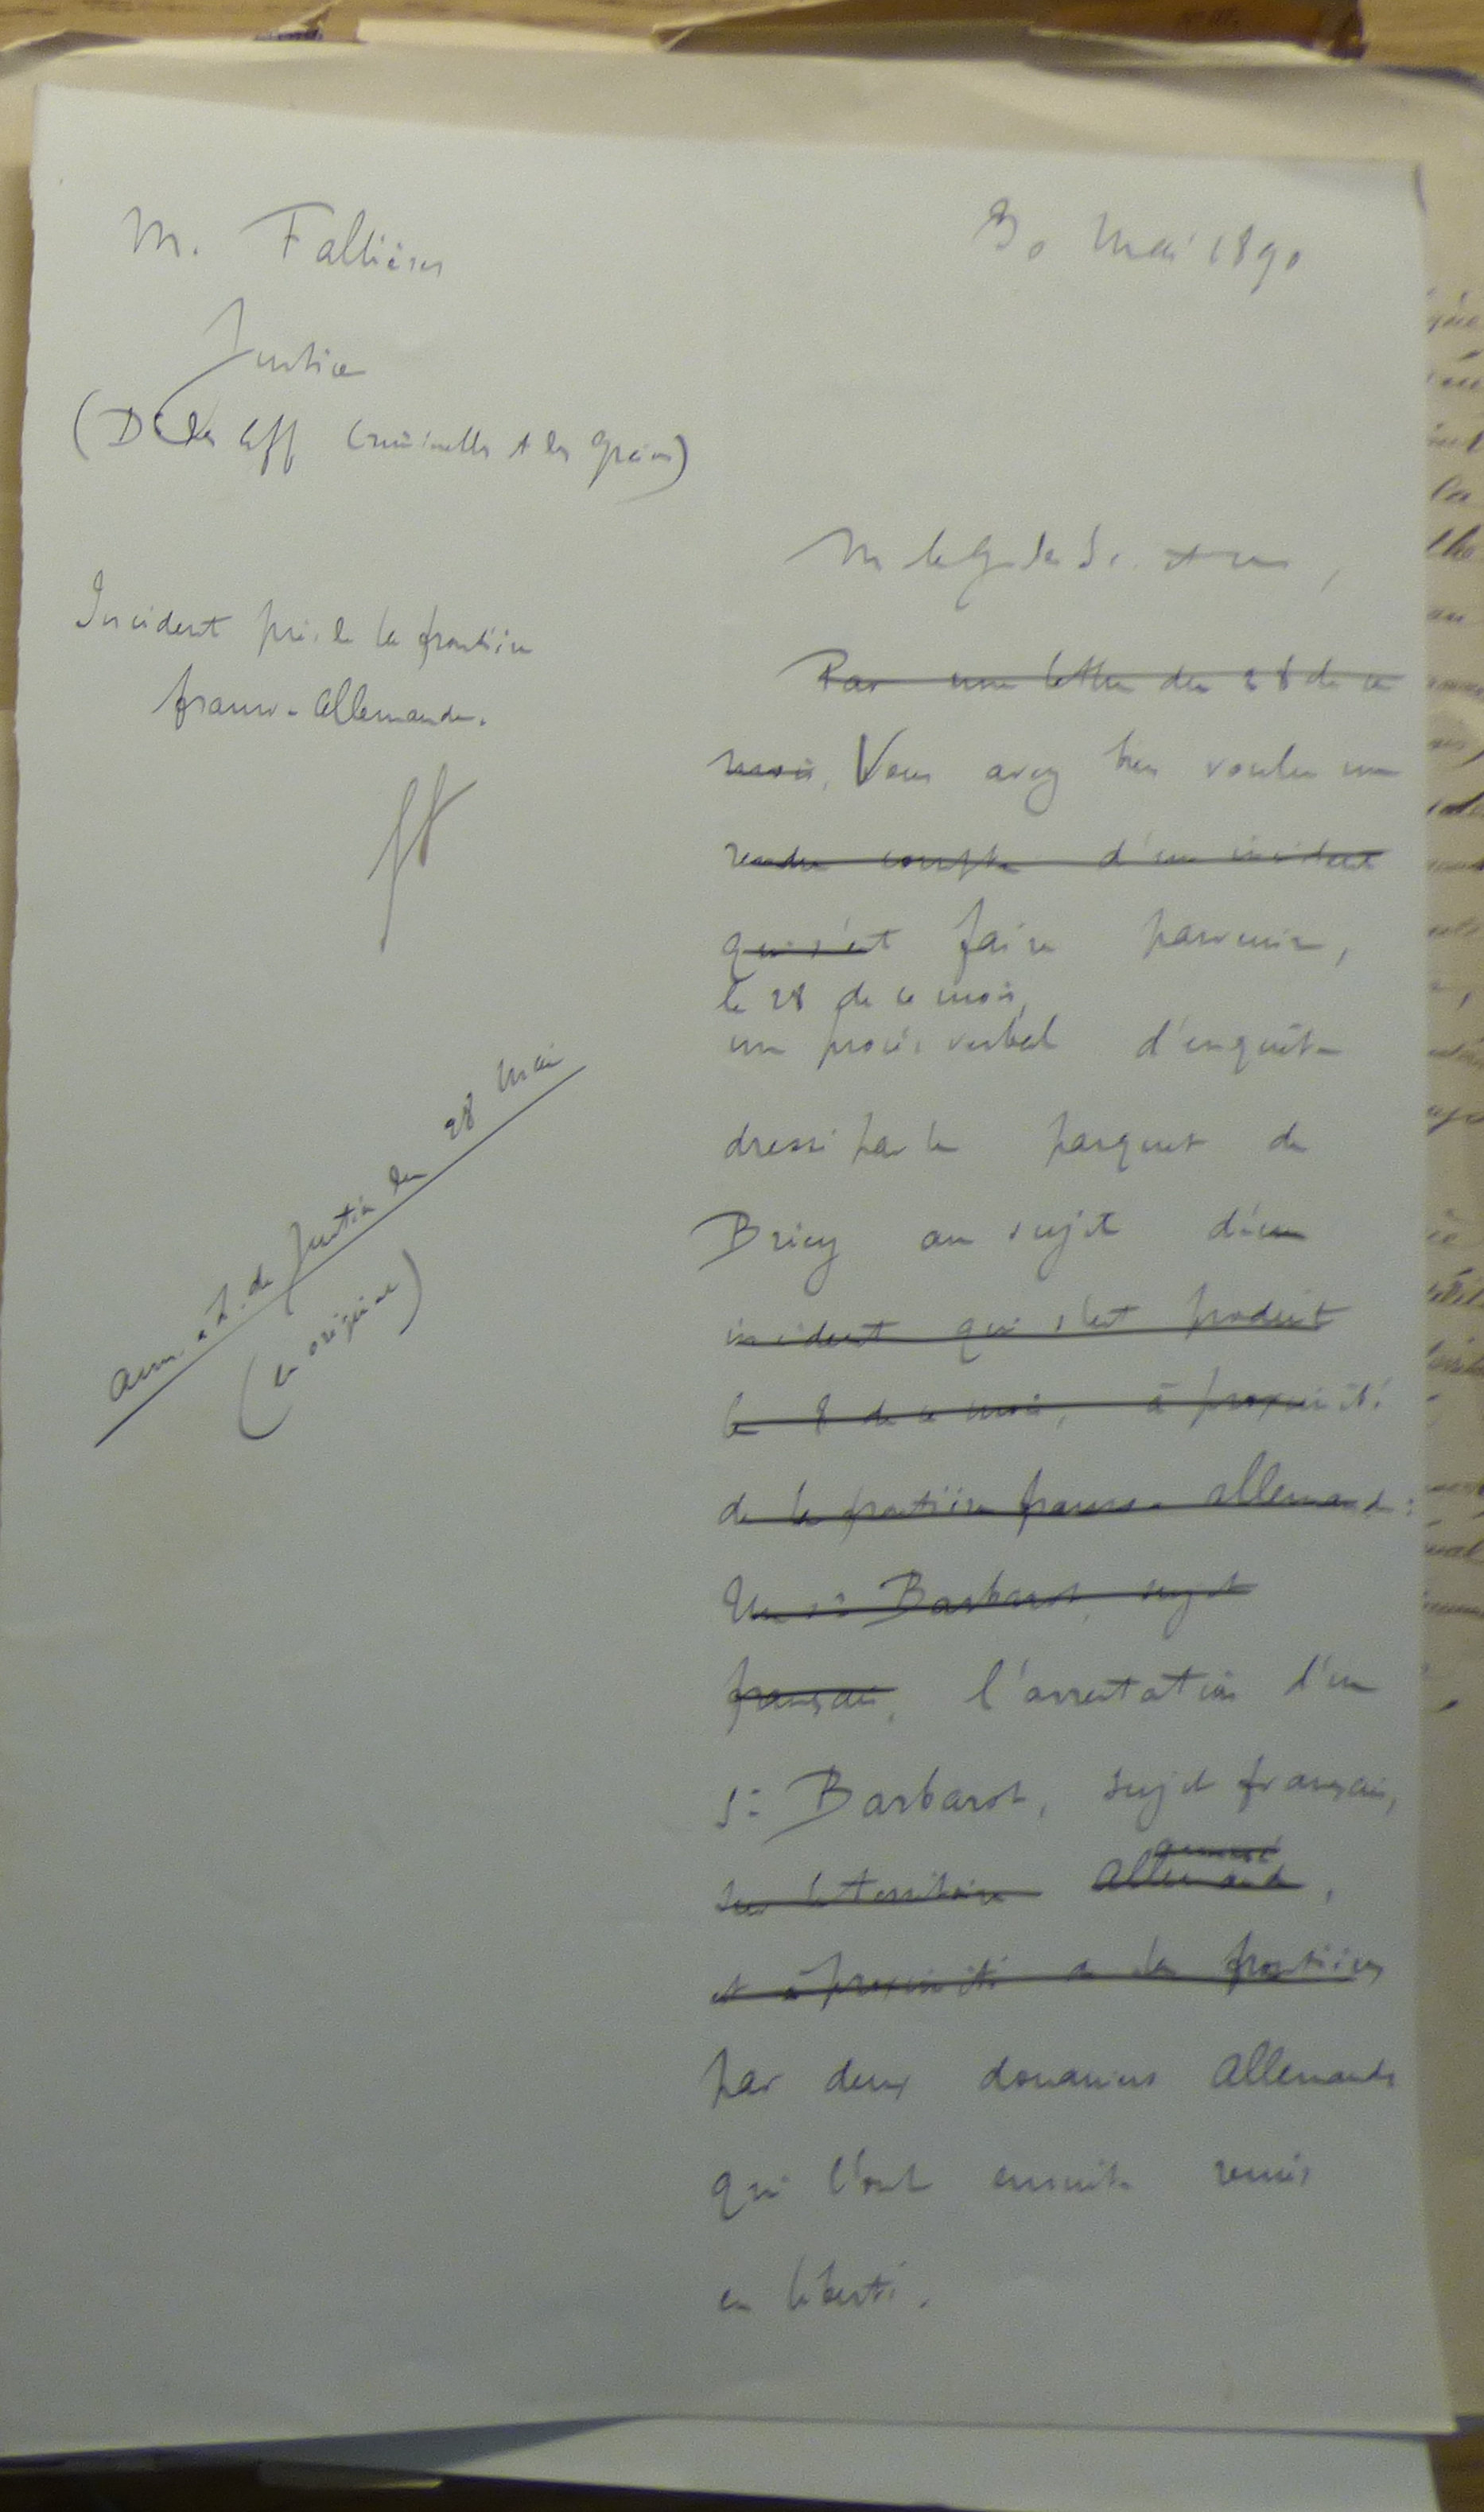 30 Mai 1890
M. Fallières
Justice
(Don des Aff Criminelles & des Grâces)
Incident près de la frontière
franco-allemande.
ann. à L. de Justice du 28 mai
(en original)
M le G. des Sc. et
Par une lettre du 28 de ce
mois, Vous avez bien voulu me
rendre compte d'un incident
qui s'est faire parvenir,
le 28 de ce mois,
un procès verbal d'enquête
dressé par le parquet de
Briey au sujet d'un
incident qui s'est produit
le 8 de ce mois, à proximité
de la frontière franco-allemande:
Un sr Barbarot, sujet
français, l'arrestation d'un
sr Barbarot, sujet français,
sur le territoire allemand,
et à proximité de la frontière
par deux douaniers allemands
qui l'ont ensuite remis
en liberté.